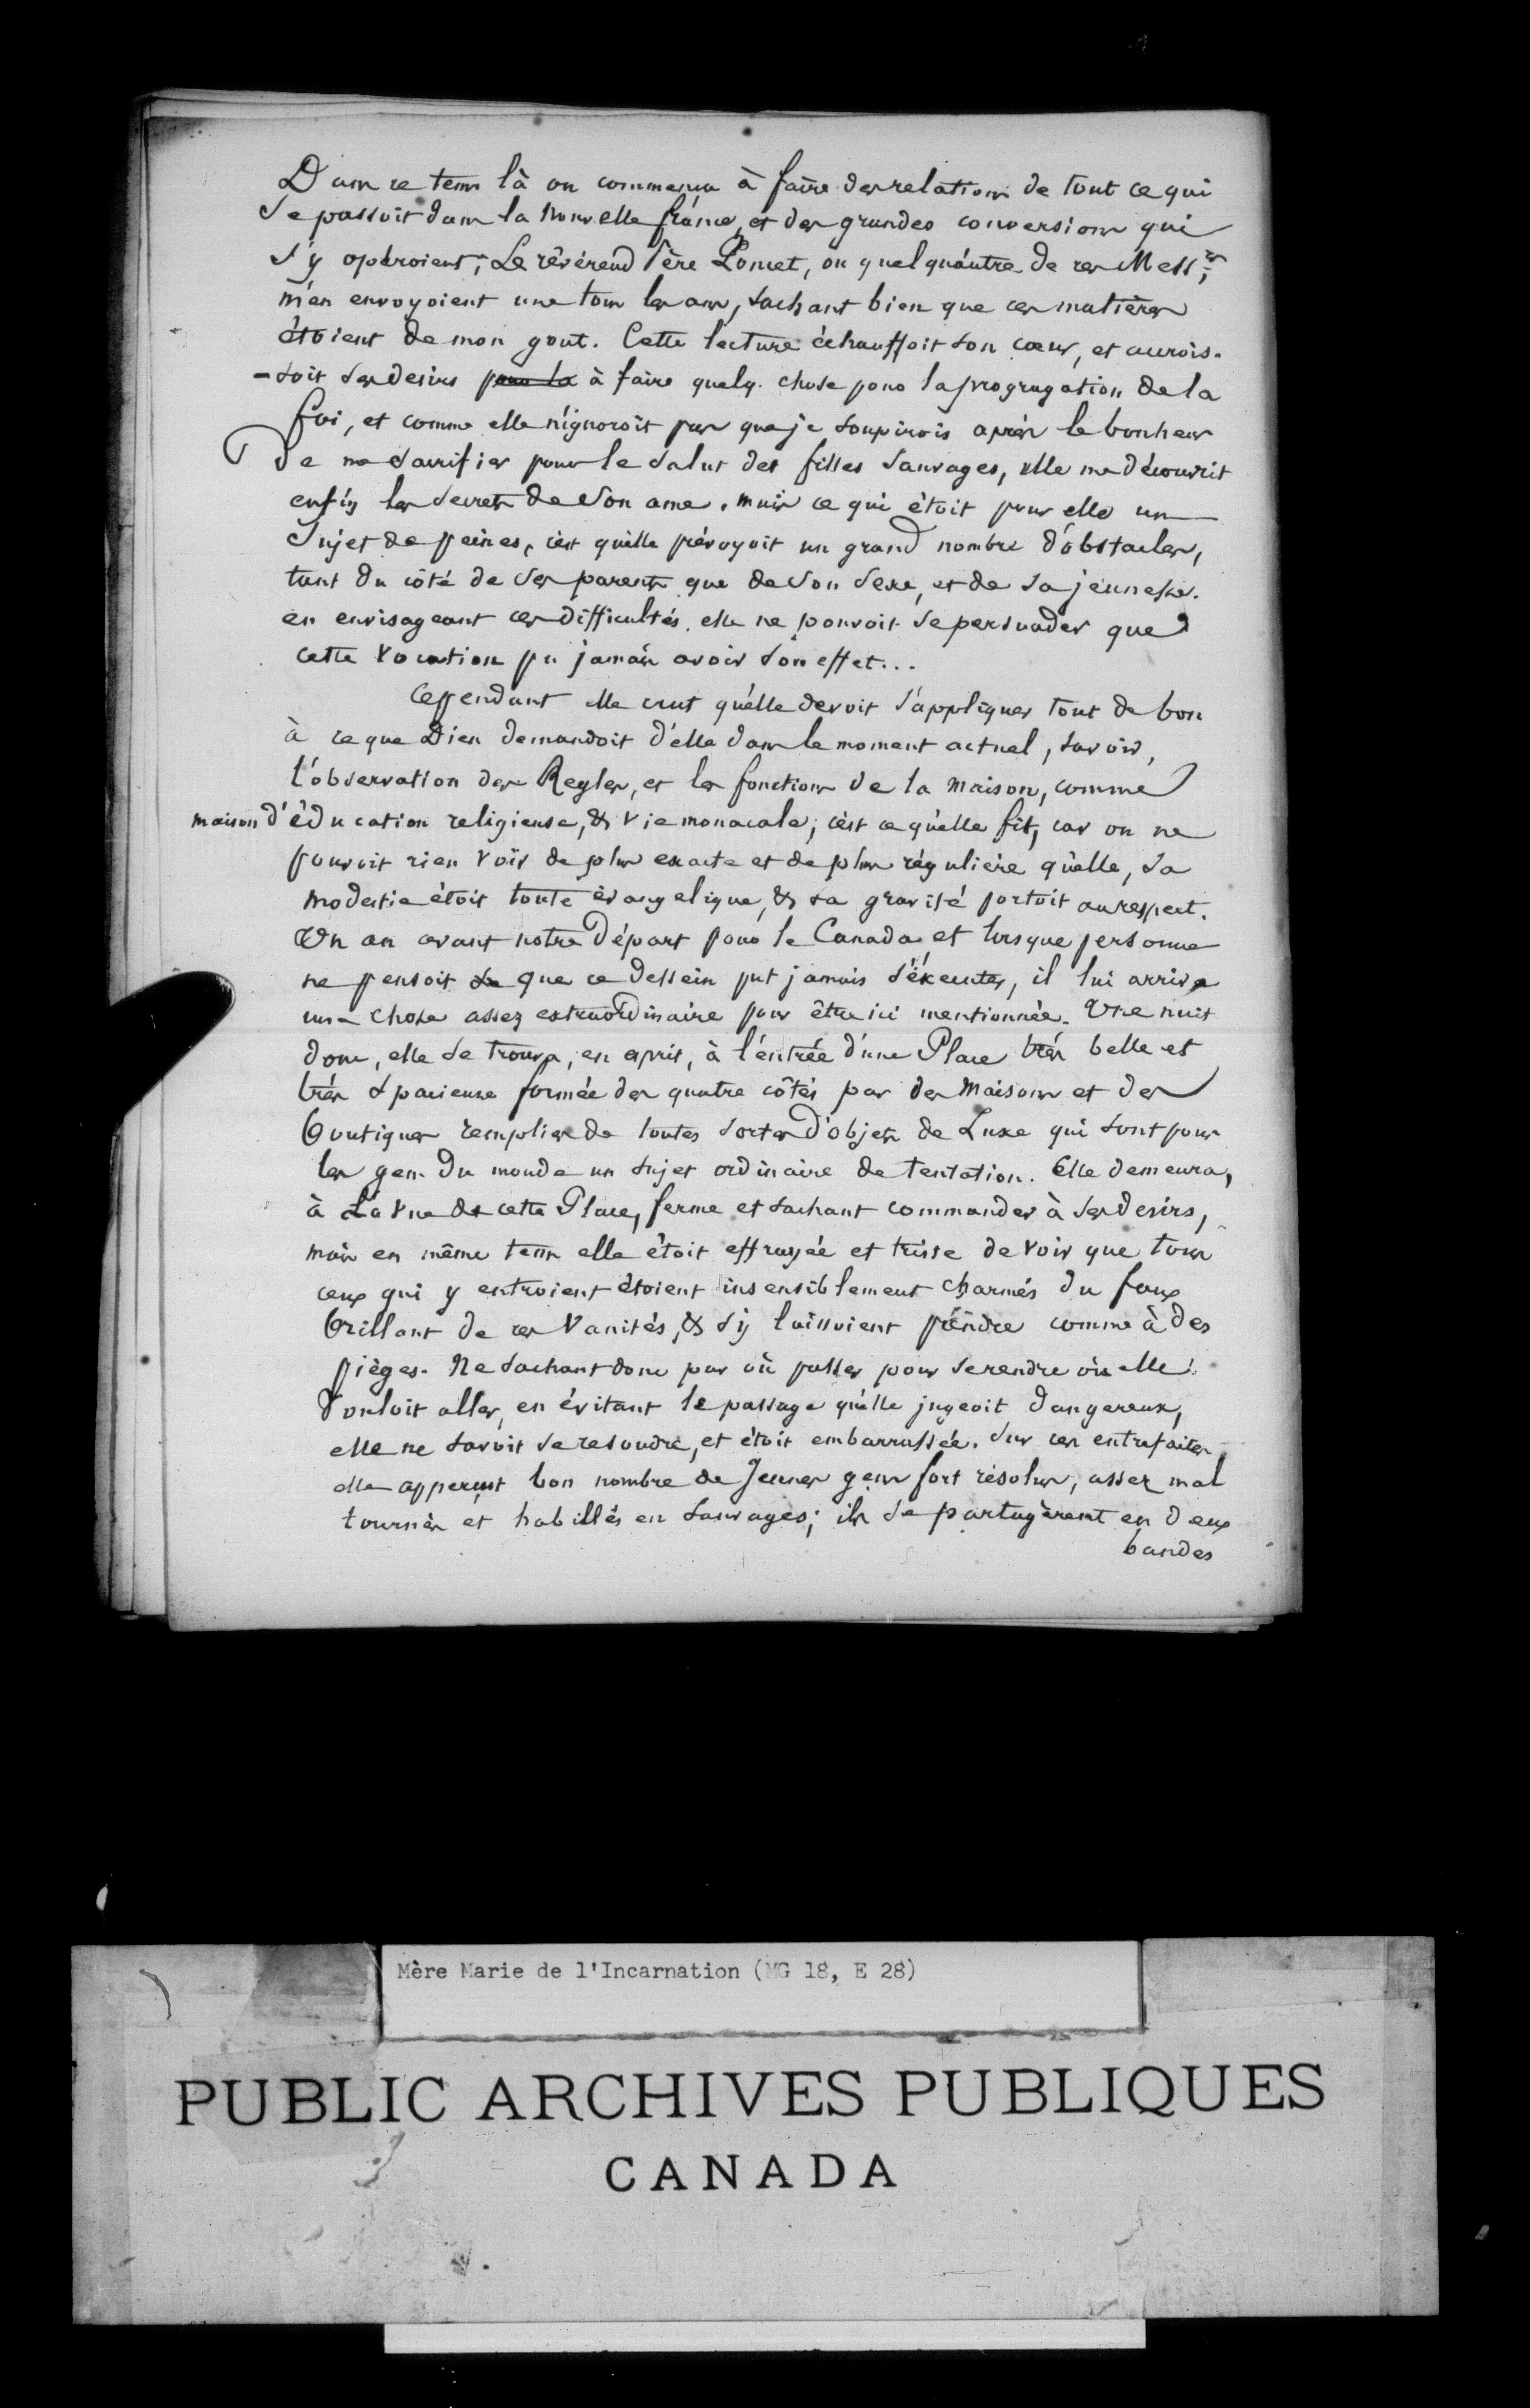 Dans ce tems là on commença à faire des relations de tout ce qui
se passoit dans la nouvelle france, et des grandes conversions qui
s'y opéroient; Le révérend Père Poncet, ou quelqu'autre de ces Messrs;
m'en envoyoient une tous les ans, sachant bien que ces matières
étoient de mon gout. Cette lecture échauffoit son cœur, et accrois-
-soit ses desirs pour la à faire quelq. chose pour la progragation de la
foi, et comme elle n'ignoroit pas que je soupirois après le bonheur
De me sacrifier pour le salut des filles sauvages, elle me découvrit
enfin les secrets de son ame. mais ce qui étoit pour elle un
sujet de peines, c'est qu'elle prévoyoit un grand nombre d'obstacles,
tant du côté de ses parents que de son sexe, et de sa jeunesse.
en envisageant ces difficultés, elle ne pouvoit se persuader que
cette vocation pu jamais avoir son effet...
Cependant elle crut qu'elle devoit s'appliquer tout de bon
à ce que Dieu demandoit d'elle dans le moment actuel, savoir,
l'observation des Regles, et les fonctions de la maison, comme
maison d'éducation religieuse, & vie monacale; c'est ce qu'elle fit, car on ne
pouvoit rien voir de plus exacte et de plus régulière qu'elle, sa
modestie étoit toute évangelique, & sa gravité portoit au respect.
Un an avant notre Départ pour le Canada, et lorsque personne
ne pensoit que ce dessein put jamais s'éxécuter, il lui arriva
une chose assez extraordinaire pour être ici mentionnée. Une nuit
donc, elle se trouva, en esprit, à l'entrée d'une Place très belle et
très spacieuse formée des quatre côtés par des maisons et des
Boutiques remplies de toutes sortes d'objets de Luxe qui sont pour
les gens du monde un sujet ordinaire de tentation. Elle demeura,
à la vue de cette Place, ferme et sachant commander à ses desirs,
mais en même tems elle étoit effrayée et triste de voir que tous
ceux qui y entroient étoient insensiblement charmés du faux
Brillant de ces vanités, & s'y laissoient prendre comme à des
pièges. Ne sachant donc par où passer pour se rendre où elle
vouloit aller, en évitant le passage qu'elle jugeoit dangereux,
elle ne savoit se resoudre, et étoit embarrassée. Sur ces entrefaites
elle apperçut bon nombre de Jeunes gens fort résolus, assez mal
tournés et habillés en sauvages; ils se partagèrent en deux
bandes
Mère Marie de l'Incarnation (MG 18, E 28)
PUBLIC ARCHIVES PUBLIQUES
CANADA